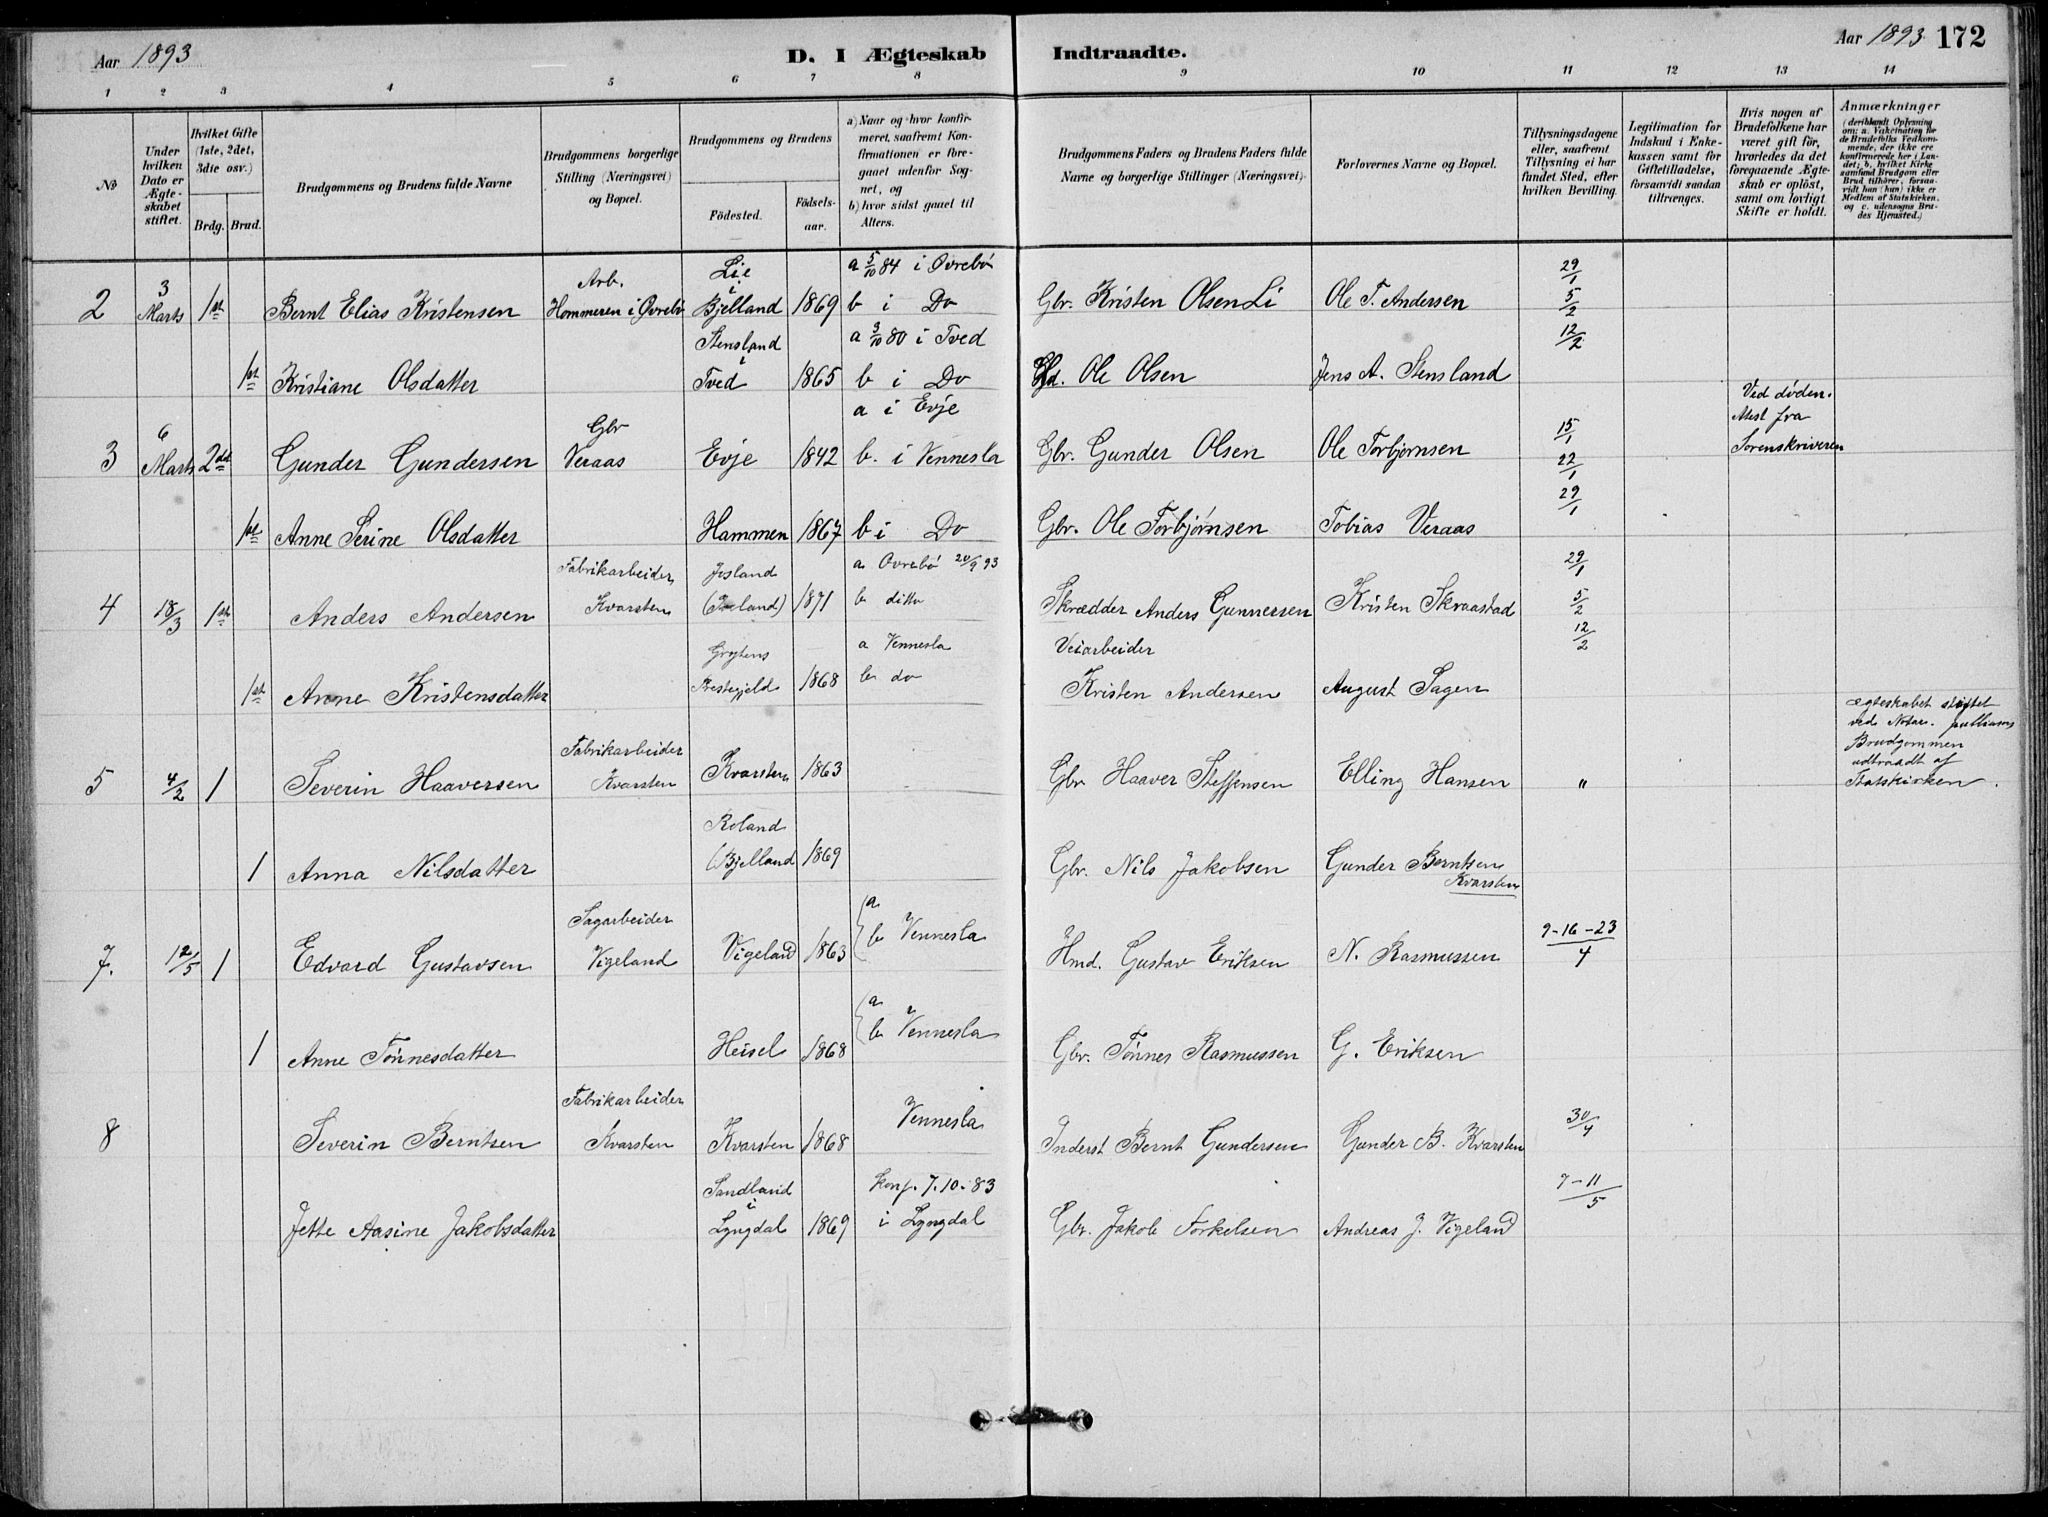 Aar 1893
D. I Ægteskab
Indtraadte.
Aar 1893
172
1 2 3 4 5 6 7 8 9 10 11 12 13 14
No
Under hvilken Dato er Ægteskabet stiftet.
Hvilket Gifte (1ste, 2det, 3die osv.)
Brdg. Brud.
Brudgommens og Brudens fulde Navne
Brudgommens borgerlige Stilling (Næringsvei) og Bopæl.
Brudgommens og Brudens
Födested.
Födsels-aar.
a) Naar og hvor konfirmeret, saafremt Konfirmationen er foregaaet udenfor Sognet, og
b) hvor sidst gaaet til Alters.
Brudgommens Faders og Brudens Faders fulde Navne og borgerlige Stillinger (Næringsvei).
Forlovernes Navne og Bopæl.
Tillysningsdagene eller, saafremt Tillysning ei har fundet Sted, efter hvilken Bevilling.
Legitimation for Indskud i Enkekassen samt for Giftetilladelse, forsaavidt saadan tiltrænges.
Hvis nogen af Brudefolkene har været gift för, hvorledes da det foregaaende Ægteskab er oplöst, samt om lovligt Skifte er holdt.
Anmærkninger (deriblandt Oplysning om: a. Vakcination for de Brudefolks Vedkommende, der ikke ere konfirmerede her i Landet; b. hvilket Kirkesamfund Brudgom eller Brud tilhörer, forsaavidt han (hun) ikke er Medlem af Statskirken, og c. udensogns Brudes Hjemsted.)
2 3 Marts 1st Bernt Elias Kristensen Arb. Hommeren i Øvrebø Lie i Bjelland 1869 a 5/10 84 i Øvrebø b i Do Gbr. Kristen Olsen Li Ole T. Andersen 29/1 5/2 12/2
1st Kristiane Olsdatter Stensland i Tved 1865 a 3/10 80 i Tved b i Do Ole Olsen Jens A. Stensland
3 6 Marts 2det Gunder Gundersen Gbr Veraas Evje 1842 a i Evje b. i Vennesla Gbr. Gunder Olsen Ole Torbjørnsen 15/1 22/1 29/1 Ved døden. Atest fra Sorenskriveren
1st Anne Serine Olsdatter Hammen 1867 b i Do Gbr. Ole Torbjørnsen Tobias Veraas
4 18/3 1st Anders Andersen Fabrikarbeider Kvarsten Josland 1871 a Ovrebø 20/9 93 b ditto Skrædder Anders Gunnersen Kristen Skraastad 29/1 5/2 12/2
1st Anne Kristensdatter Prestegjeld 1868 a Vennesla b do Veiarbeider Kristen Andersen August Sagen
5 4/2 1 Severin Haaversen Fabrikarbeider Kvarsten Kvarsten 1863 Gbr Haaver Steffensen Elling Hansen " Ægteskabet stiftet ved Notar. publicus Brudgommen udtraadt af Statskirken.
1 Anna Nilsdatter Roland (Bjelland 1869 Gbr. Nils Jakobsen Gunder Berntsen Kvarsten
7. 12/5 1 Edvard Gustavsen Sagarbeider Vigeland Vigeland 1863 a b Vennesla Hmd. Gustav Eriksen N. Rasmussen 9-16-23/4
1 Anne Tönnesdatter Heisel 1868 a b Vennesla Gbr. Tønnes Rasmussen G. Eriksen
8 Severin Berntsen Fabrikarbeider Kvarsten Kvarsten 1868 Vennesla Inderst Bernt Gundersen Gunder B. Kvarsten 30/4
Jette Aasine Jakobsdatter Sandland i Lyngdal 1869 Konf. 7.10.83 i Lyngdal Gbr. Jakob Torkelsen Andreas J. Vigeland 9-11/5